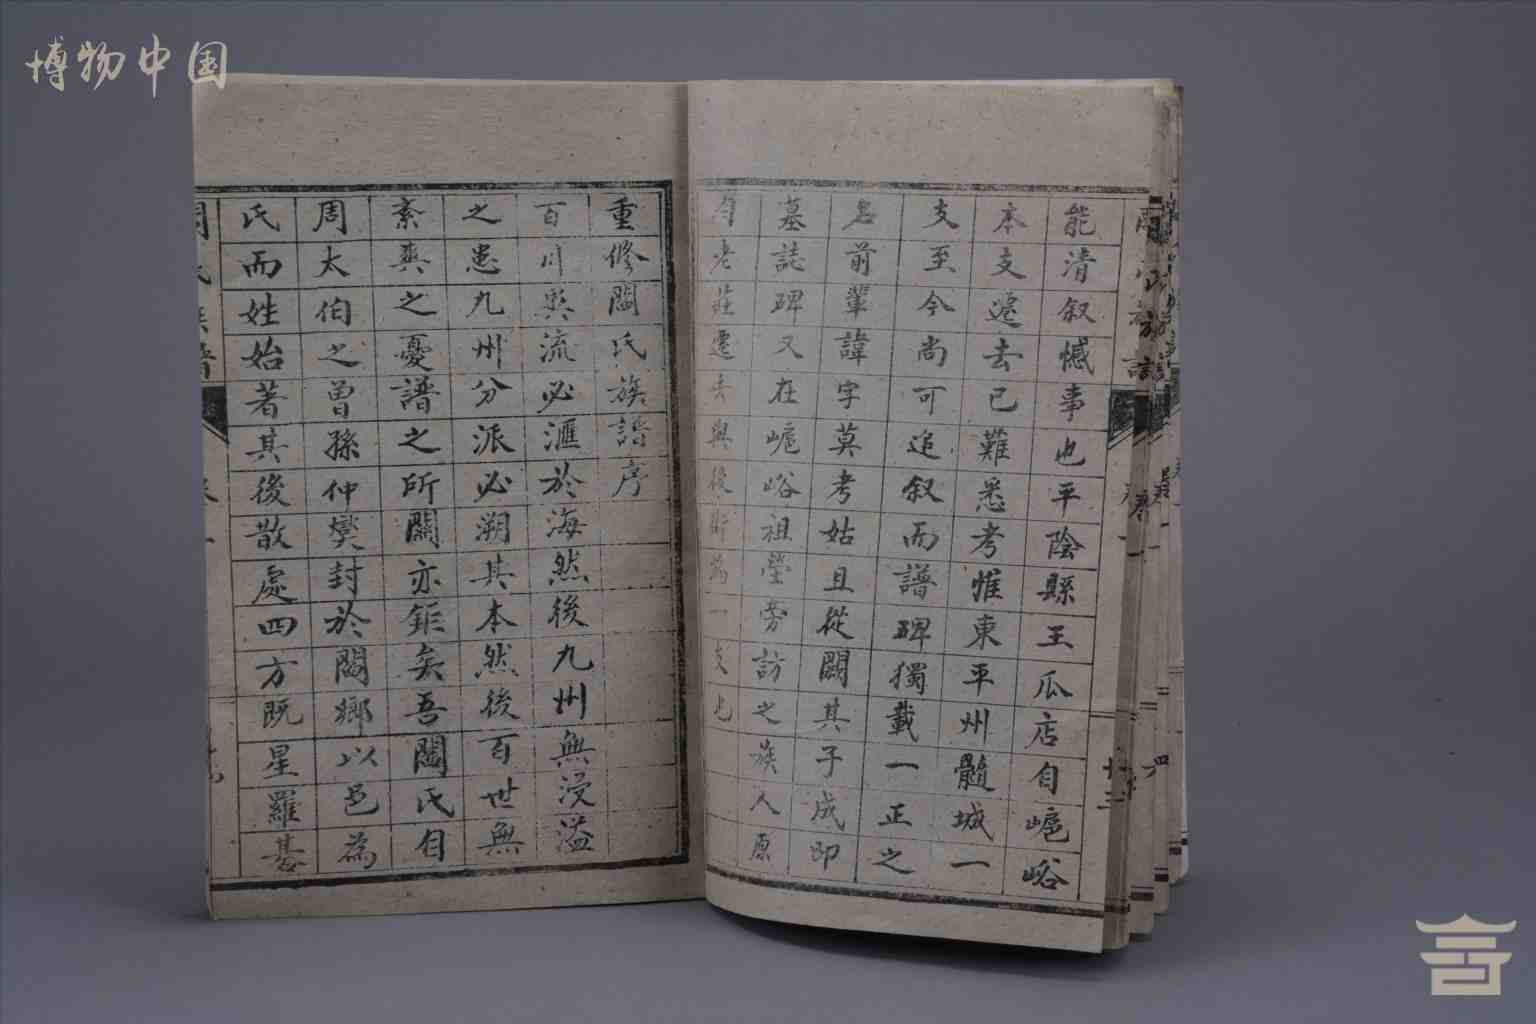 博物中国
能清叙憾事也平陰縣王瓜店自㟅峪
本支遷去已難悉考惟東平州髓城一
支至今尚可追叙而譜碑獨載一正之
名前輩諱字莫考姑且從闕其子成即
墓誌碑又在㟅峪祖塋旁訪之族人原
自老莊遷去與後街為一支也
重修閻氏族譜序
百川異流必滙於海然後九州無浸溢
之患九州分派必溯其本然後百世無
紊與之憂譜之所關亦鉅矣吾閻氏自
周太伯之曾孫仲奕封於閻鄉以邑為
氏而姓始著其後散處四方既星羅碁